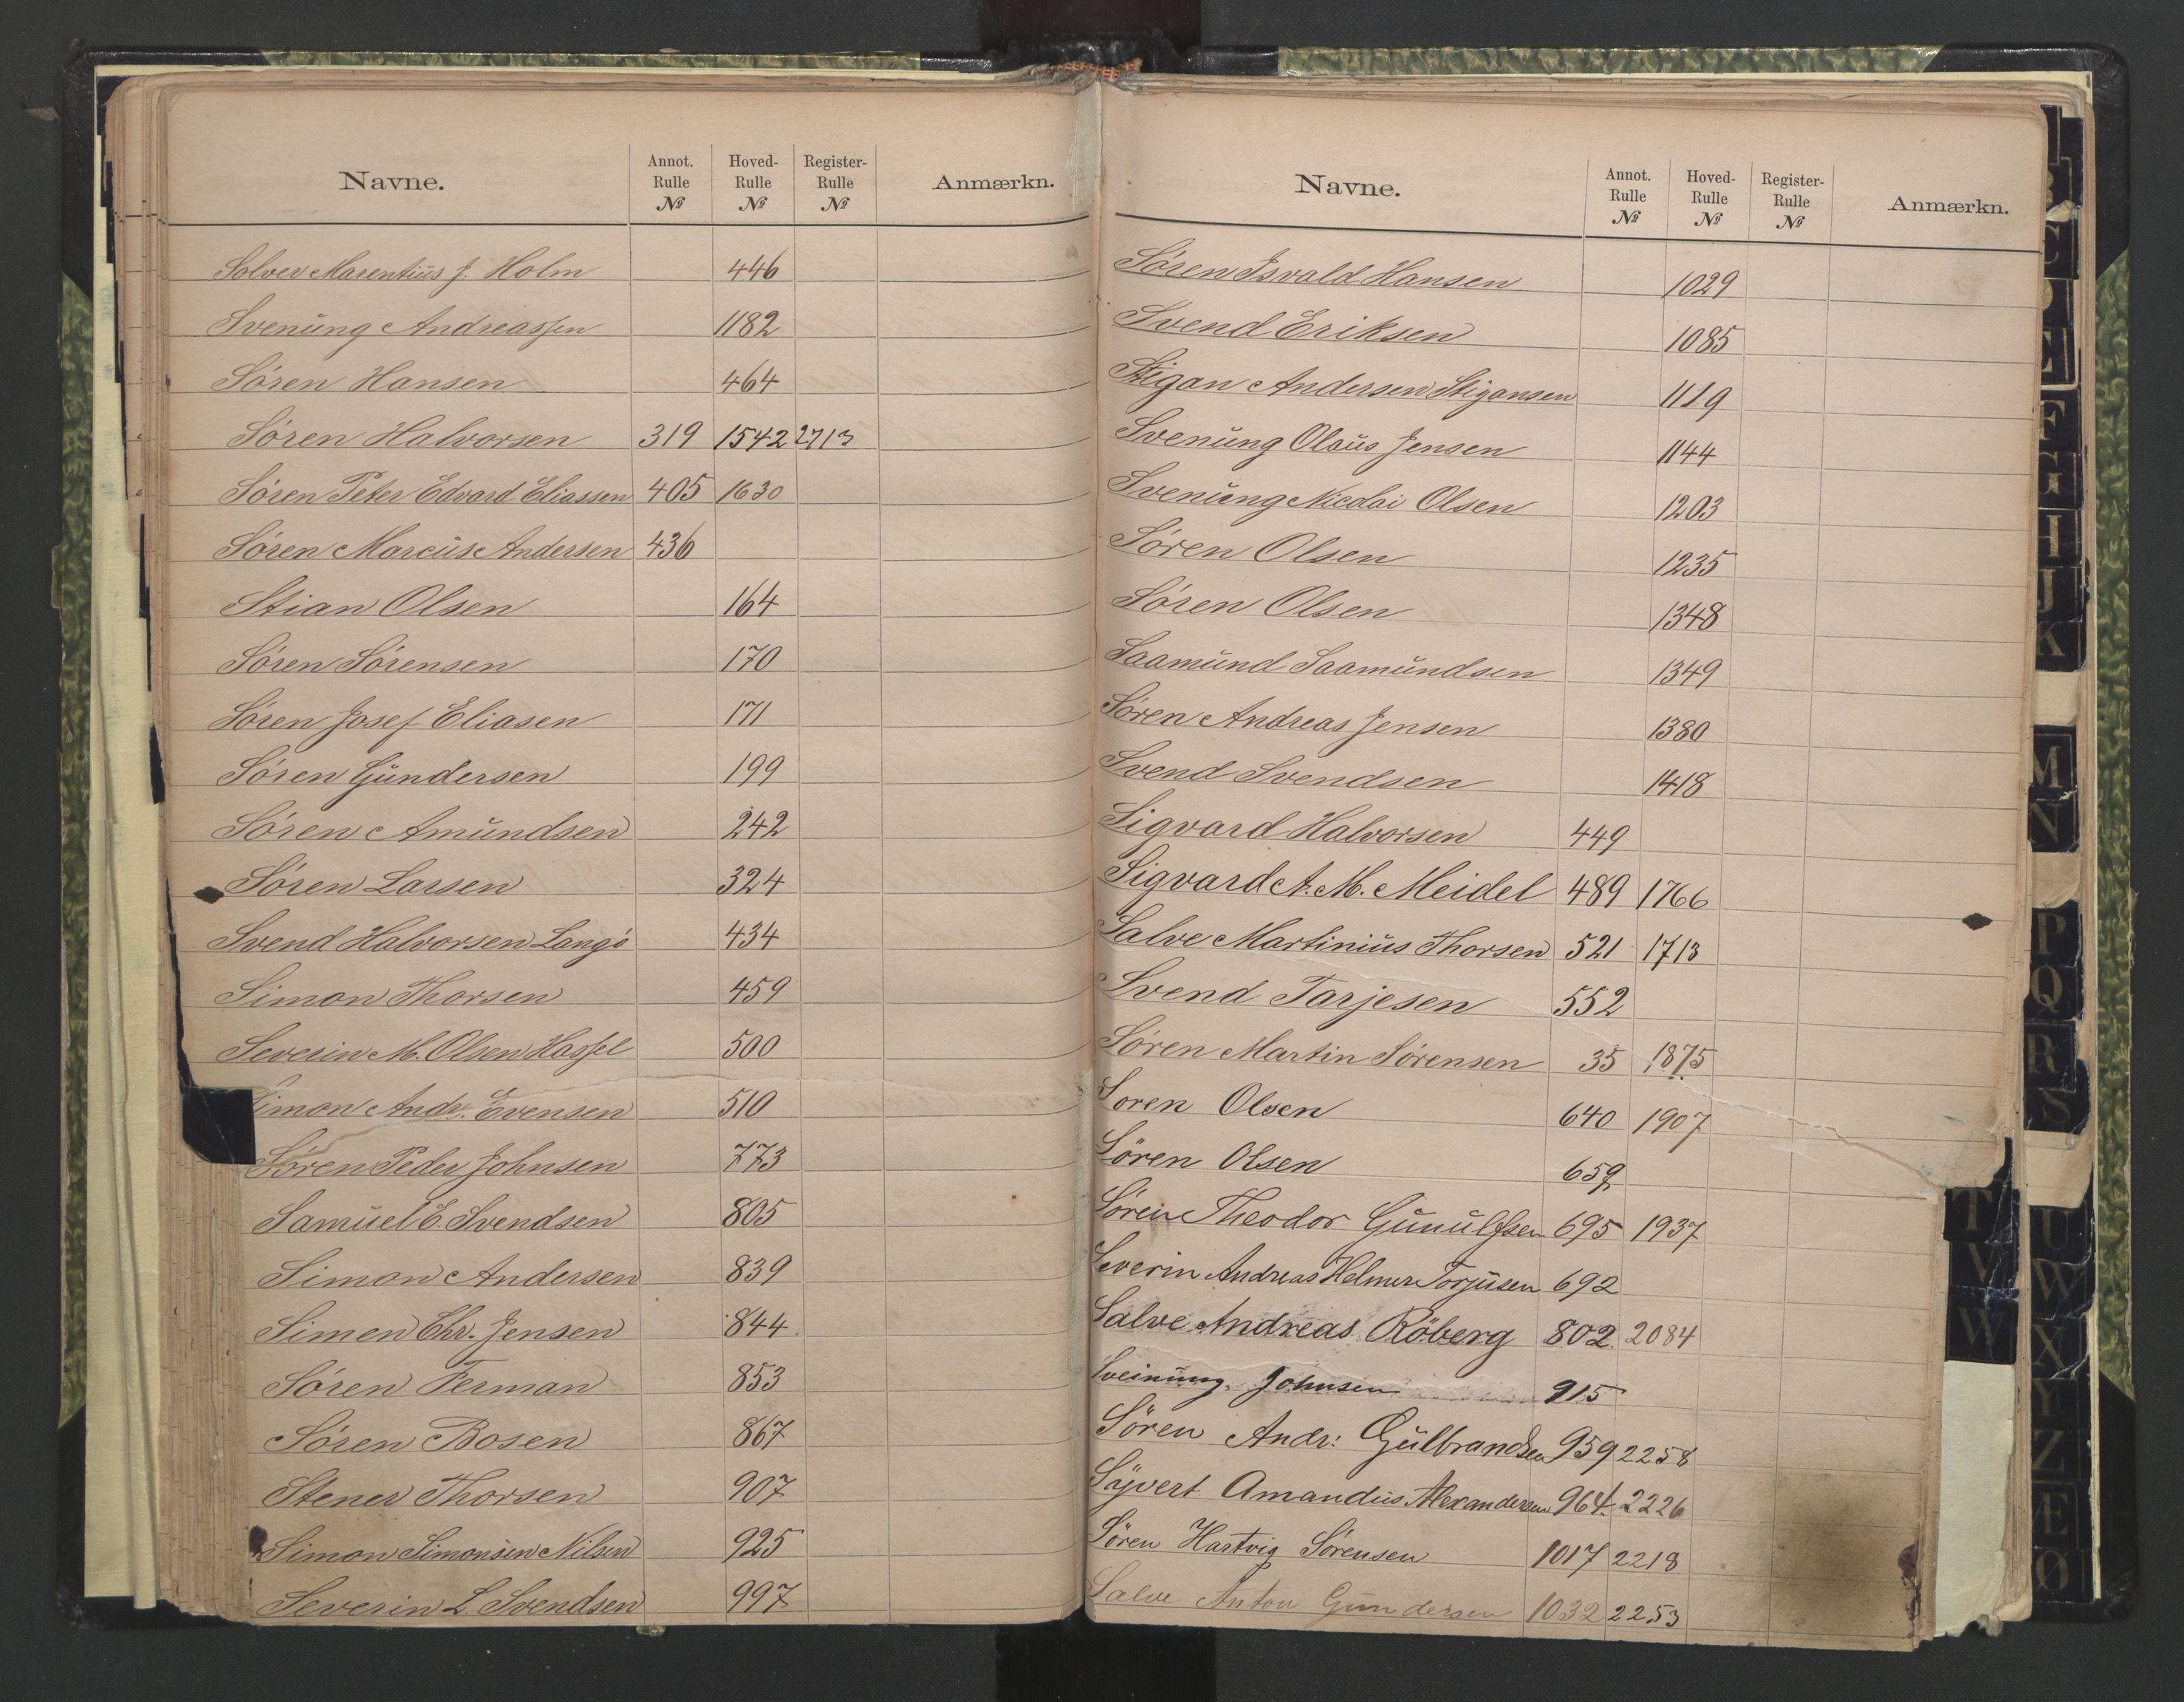 Navne. Annot. Rulle № Hoved-Rulle № Register-Rulle № Anmærkn.
Solver Marentius J. Holm 446
Svenung Andreassen 1182
Søren Hansen 464
Søren Halvorsen 319 1542 2713
Søren Peter Edvard Eliassen 405 1630
Søren Marcus Andersen 436
Stian Olsen 164
Søren Sørensen 170
Søren Josef Eliasen 171
Søren Gundersen 199
Søren Amundsen 242
Søren Larsen 324
Svend Halvorsen Langø 434
Simon Thorsen 459
Severin M. Olsen Hassel 500
Simon Andr. Evensen 510
Søren Peder Johnsen 773
Samuel E. Svendsen 805
Simon Andersen 839
Simen Chr. Jensen 844
Søren Ferman 853
Søren Bosen 867
Stener Thorsen 907
Simon Simonsen Nilsen 925
Severin L Svendsen 997
Navne. Annot. Rulle № Hoved-Rulle № Register-Rulle № Anmærkn.
Søren Isvald Hansen 1029
Svend Eriksen 1085
Stigan Andersen Stigansen 1119
Svenung Olaus Jensen 1144
Svenung Nicolai Olsen 1203
Søren Olsen 1235
Søren Olsen 1348
Saamund Saamundsen 1349
Søren Andreas Jensen 1380
Svend Svendsen 1418
Sigvard Halvorsen 449
Sigvard A. M. Meidel 489 1766
Salve Martinius Thorsen 521 1713
Svend Tarjesen 552
Søren Martin Sørensen 35 1875
Soren Olsen 640 1907
Sören Olsen 659
Søren Theodor Gunulfsen 695 1937
Severin Andreas Helmer Torjusen 692
Salve Andreas Röberg 802 2084
Sveinung Johnsen 915
Sören Andr: Gulbrandsen 959 2258
Syvert Amandus Alexandersen 964 2226
Søren Hartvig Sørensen 1017 2218
Salve Anton Gundersen 1032 2253
C
E
F
G
H
I
J
K
M
N
P
Q
R
S
T
U
V
W
W
X
Y
Z
Æ
Ø